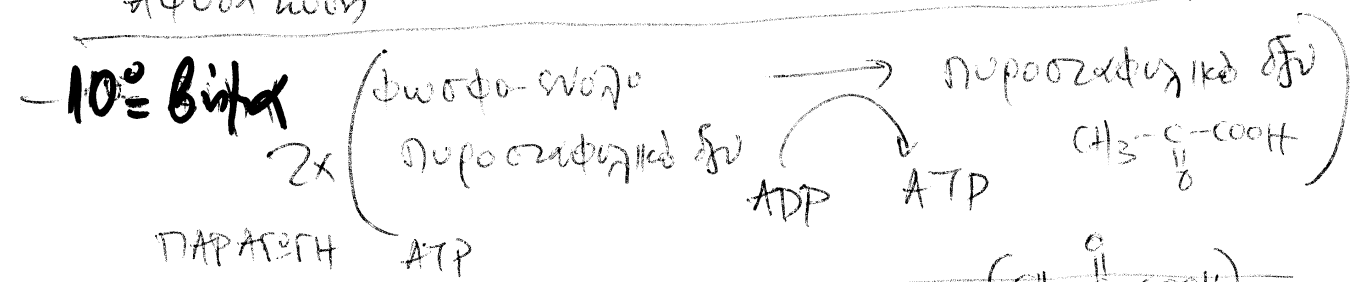 - 10º βήμα
2x ( φωσφο-ενολο → πυροσταφυλικό οξύ
πυροσταφυλικό οξύ CH3-C-COOH )
||
O
ADP ATP
ΠΑΡΑΓΩΓΗ ATP
O
||